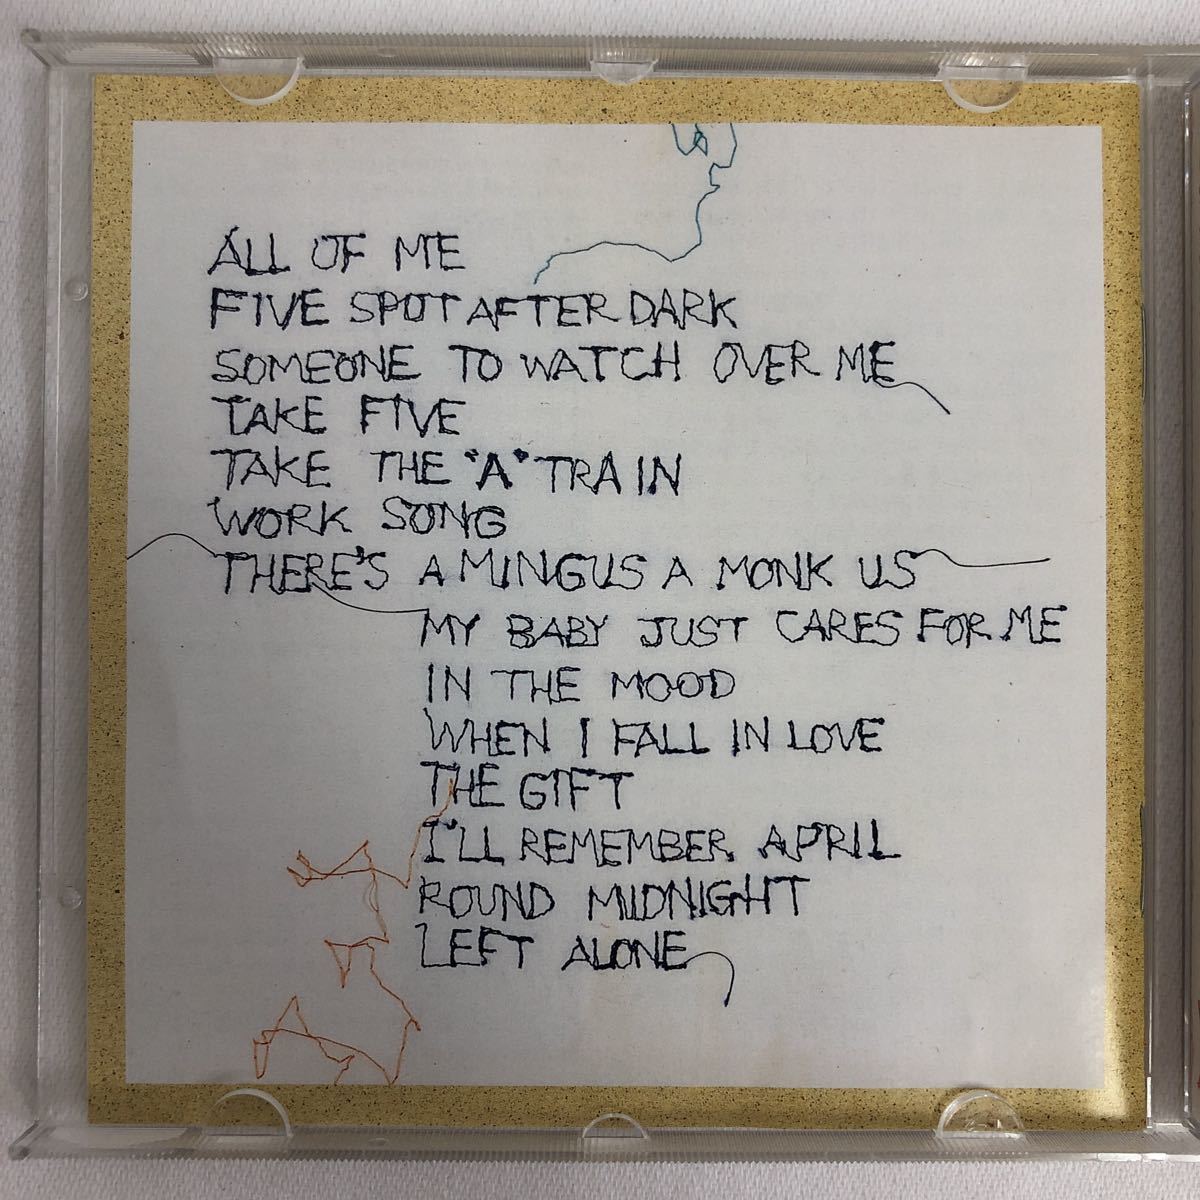 ALL OF ME
FIVE SPOT AFTER DARK
SOMEONE TO WATCH OVER ME
TAKE FIVE
TAKE THE "A" TRAIN
WORK SONG
THERE'S A MINGUS A MONK US
MY BABY JUST CARES FOR ME
IN THE MOOD
WHEN I FALL IN LOVE
THE GIFT
I'LL REMEMBER APRIL
ROUND MIDNIGHT
LEFT ALONE